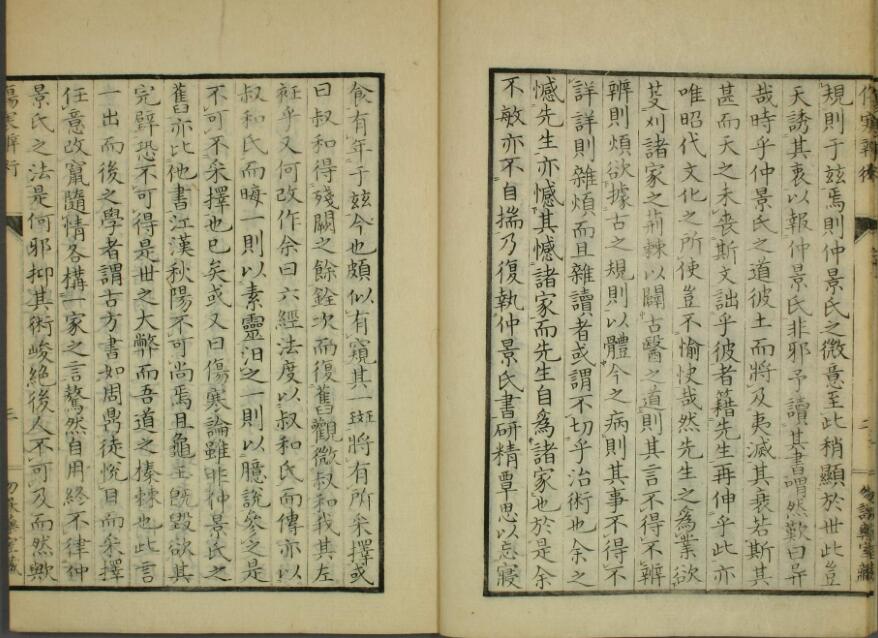 規則于茲焉則仲景氏之微意至此稍顯於世此豈
天誘其衷以報仲景氏非邪予讀其書謂然歎曰异
哉時乎仲景氏之道彼土而將及夷滅其衰若斯其
甚而天之未喪斯文詘乎彼者籍先生再伸乎此亦
唯昭代文化之所使豈不愉快哉然先生之為業欲
芟刈諸家之荊棘以闢古醫之道則其言不得不辨
辨則煩欲據古之規則以體今之病則其事不得不
詳詳則雜煩而且雜讀者或謂不切乎治術也余之
憾先生亦憾其憾諸家而先生自為諸家也於是余
不敏亦不自揣乃復執仲景氏書研精覃思以忘寢
食有年于茲今也頗似有窺其一斑將有所采擇或
曰叔和得殘闕之餘銓次而復舊觀微叔和我其左
衽乎又何改作余曰六經法度以叔和氏而傳亦以
叔和氏而晦一則以素靈汩之一則以臆說參之是
不可不采擇也已矣或又曰傷寒論雖非仲景氏之
舊亦比他書江漢秋陽不可尚焉且龜玉既毀欲其
完辟恐不可得是世之大弊而吾道之榛棘也此言
一出而後之學者謂古方書如周鼎徒悅目而采擇
任意改竄隨情各構一家之言驁然自用終不律仲
景氏之法是何邪抑其術峻絕後人不可及而然歟
三